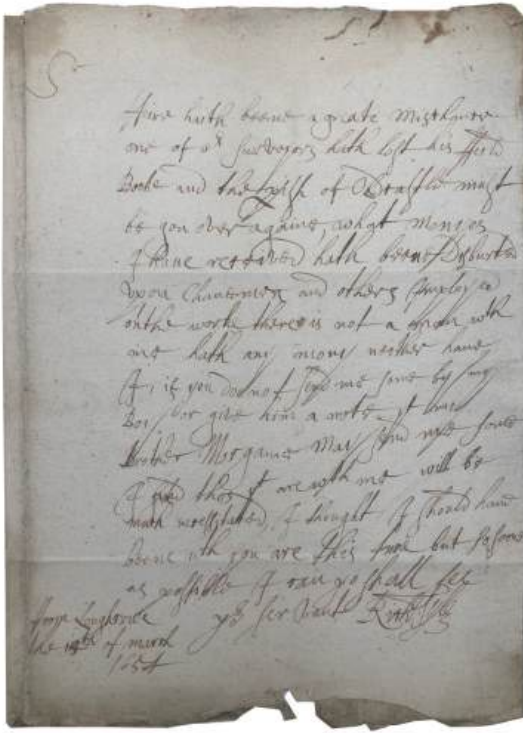 Here hath beene a greate Mischance
one of or Surveyors hath lost his Field
Booke and the of must
be gon over againe, what monies
I have received hath beene Disbursed
upon Chainemen and others Imployed
onthe worke there is not a man wth
me hath any mony neither have
I, if you doe not send me some by my
Boy, or give him a note yt my
Brother Morgaine May send mee some
I and those yt are with me will be
much I thought I should have
beene wth you are this time but so soone
as possible I can yo shall see
yor Servant
From
the 18th of march
1654